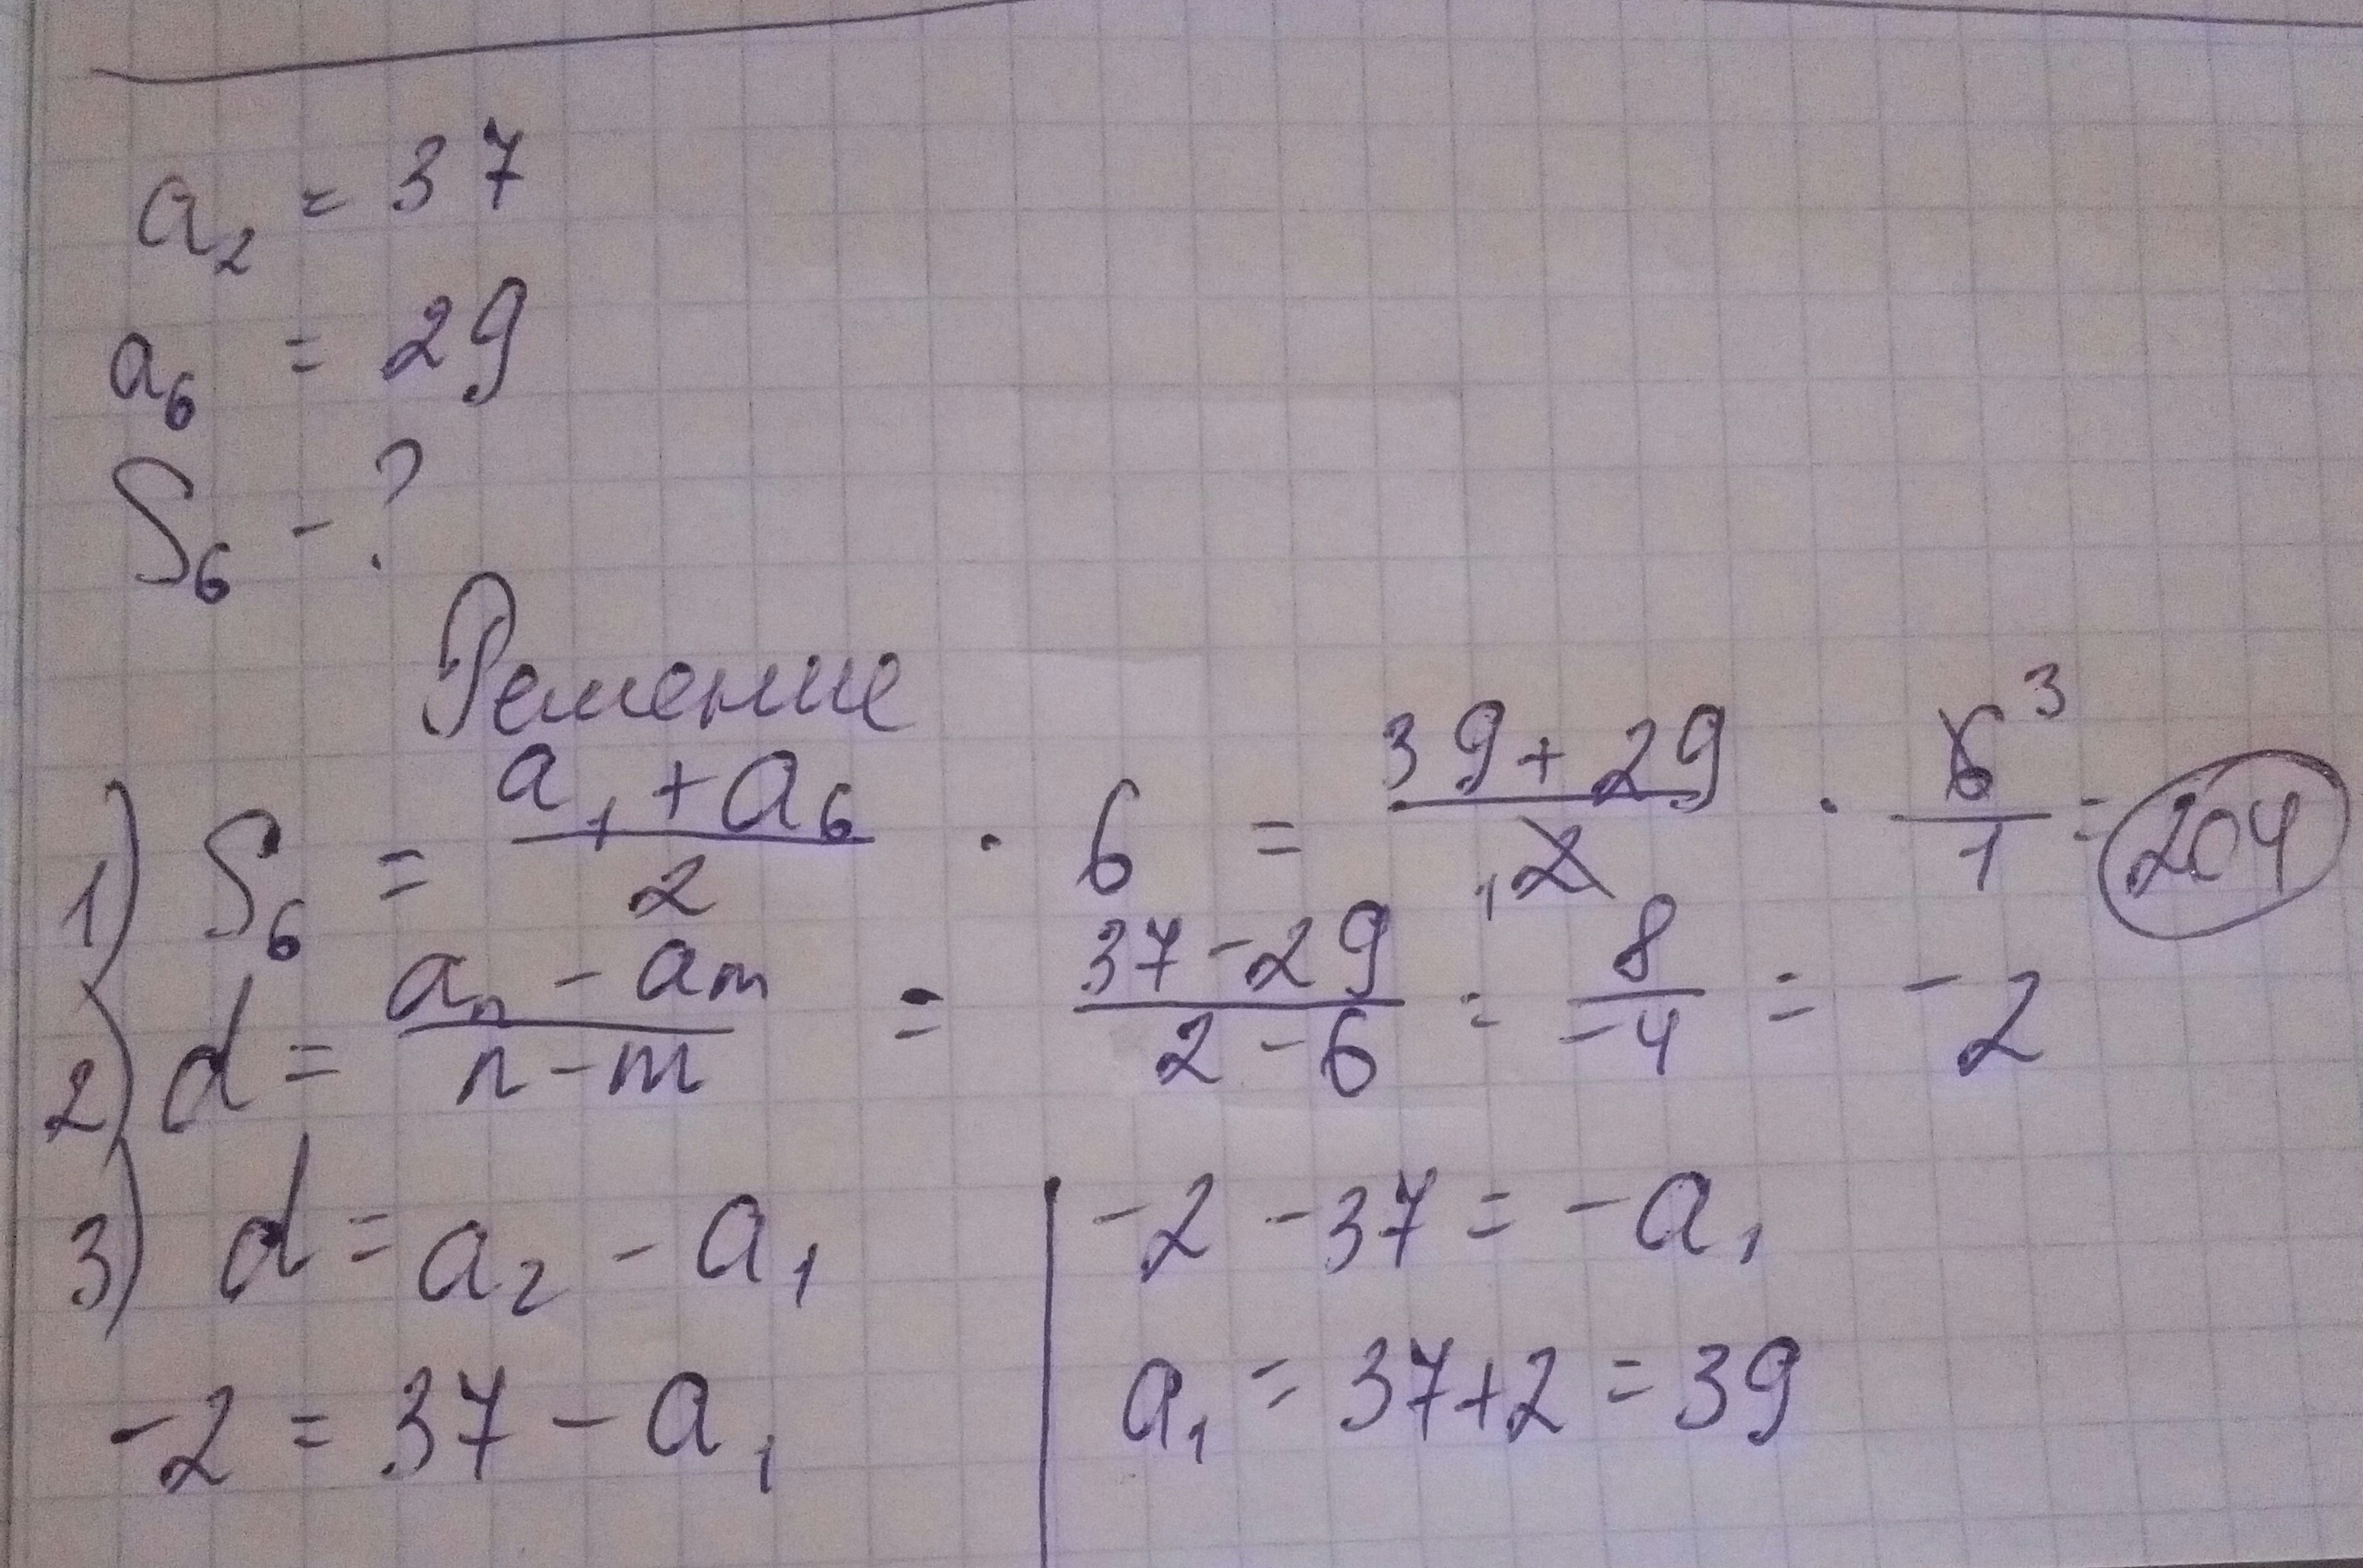 a₂ = 37
a₆ = 29
S₆ - ?
Решение
1) S₆ = (a₁ + a₆)/2 · 6 = (39 + 29)/2 1 · 6 3/1 = 204
2) d = (aₙ - aₘ)/(n - m) = (37 - 29)/(2 - 6) = 8/-4 = -2
3) d = a₂ - a₁
-2 = 37 - a₁
-2 - 37 = -a₁
a₁ = 37 + 2 = 39